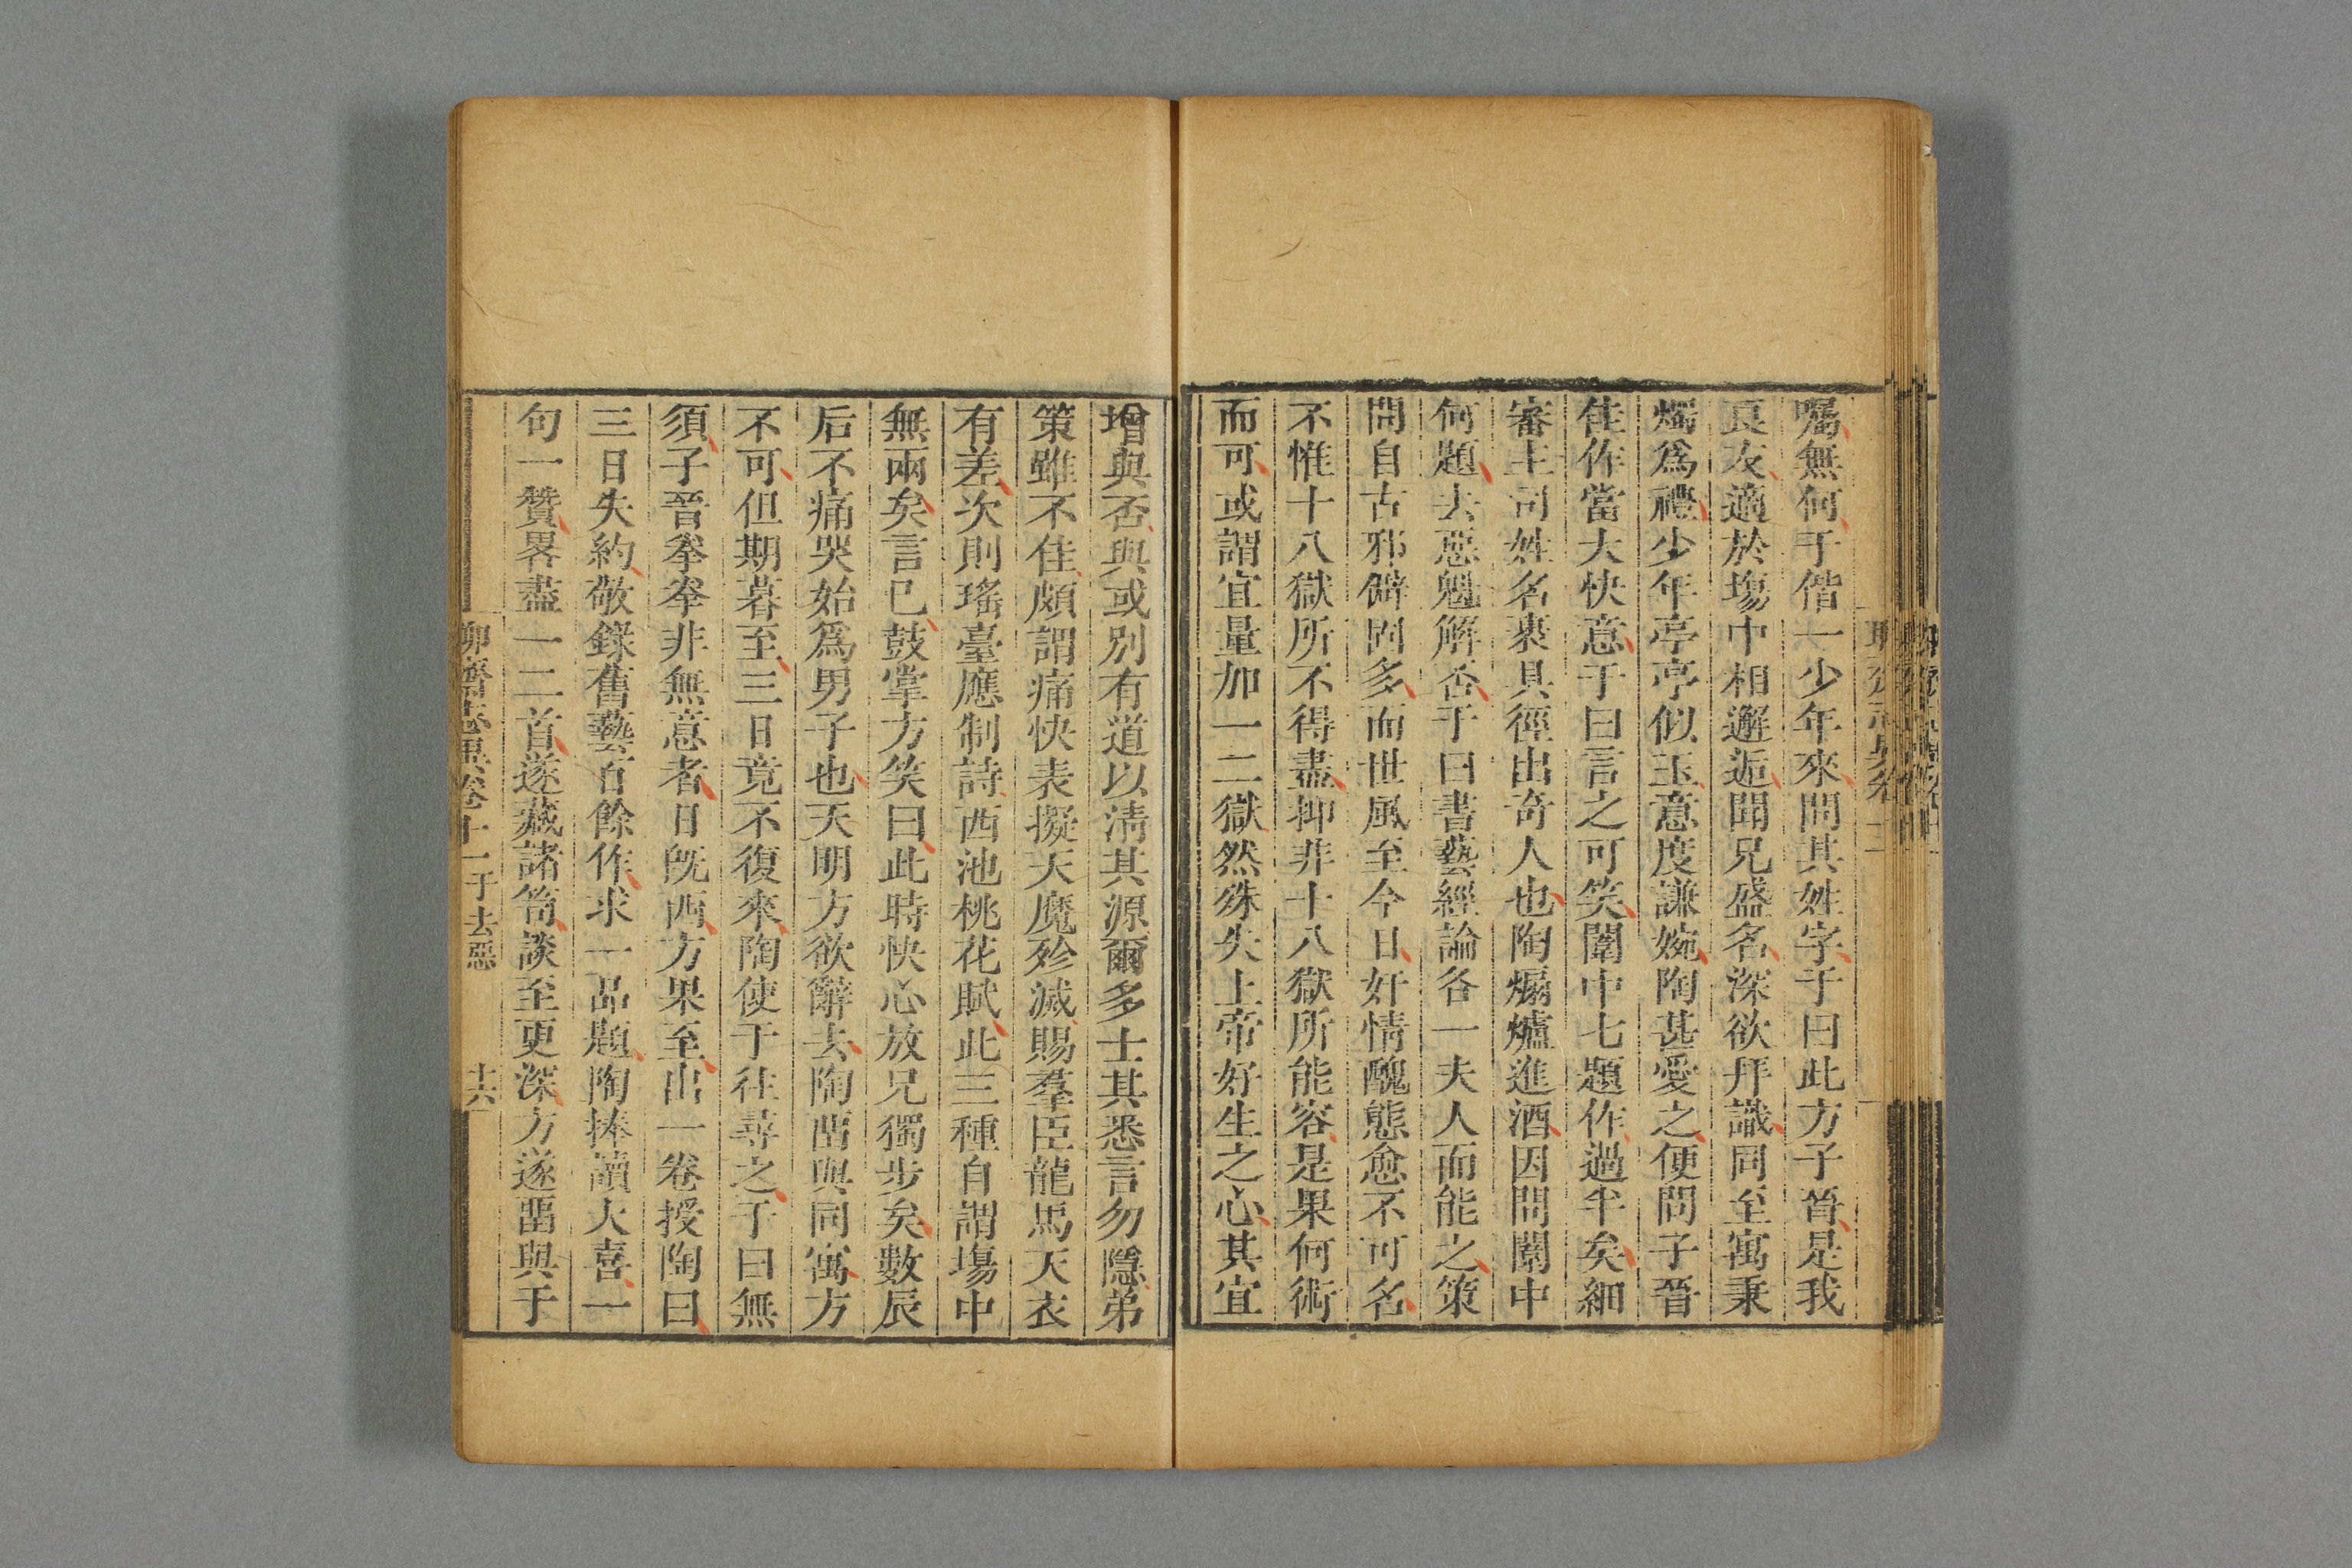 囑無何于偕一少年來問其姓字于曰此方子晉是我
良友適於塲中相邂逅聞兄盛名深欲拜識同至寓秉
燭爲禮少年亭亭似玉意度謙婉陶甚愛之便問子晉
佳作當大快意于曰言之可笑闈中七題作過半矣細
審主司姓名裹具徑出奇人也陶煽爐進酒因問闈中
何題去惡魁解否于曰書藝經論各一夫人而能之策
問自古邪僻固多而世風至今日奸情醜態愈不可名
不惟十八獄所不得盡抑非十八獄所能容是果何術
而可或謂宜量加一二獄然殊失上帝好生之心其宜
增與否與或别有道以清其源爾多士其悉言勿隱弟
策雖不佳頗謂痛快表擬天魔殄滅賜羣臣龍馬天衣
有差次則瑤臺應制詩西池桃花賦此三種自謂塲中
無兩矣言已鼓掌方笑曰此時快心放兄獨步矣數辰
后不痛哭始爲男子也天明方欲辭去陶畱與同寓方
不可但期暮至三日竟不復來陶使于往尋之于曰無
須子晉拳拳非無意者日旣西方果至出一卷授陶曰
三日失約敬錄舊藝百餘作求一品題陶捧讀大喜一
句一贊畧盡一二首遂藏諸笥談至更深方遂畱與于
聊齋志異卷十一于去惡 十六